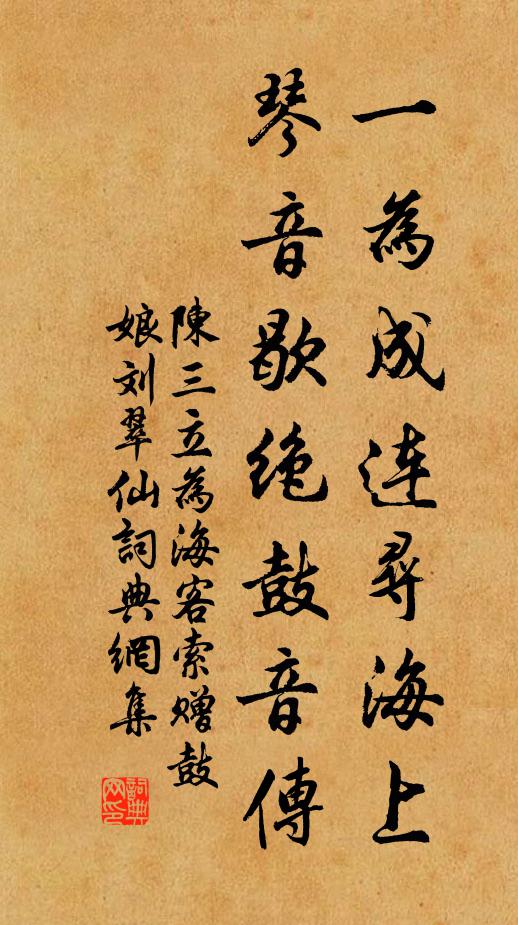 一為成連尋海上
琴音歇绝鼓音傳
陳三立為海客索赠鼓
娘刘翠仙詞典網集
詞典
网印